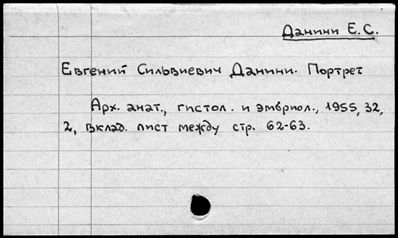 Данини Е.С.
Евгений Сильвиевич Данини. Портрет
Арх. анат., гистол. и эмбриол., 1955, 32,
2, вклад. лист между стр. 62-63.